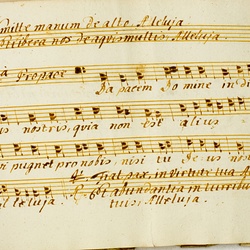 Emitte manum de alto Alleluja
et libera nos de aquis multis. Alleluja.
a Pro pace
Da pacem Do mine in di
us nostris, quia non est alius
i pugnet pro nobis, nisi tu de us no
℣. Fiat pax in virtute tua A
lleluja ℟. Et abundantia in turrib
tuis, Alleluja.